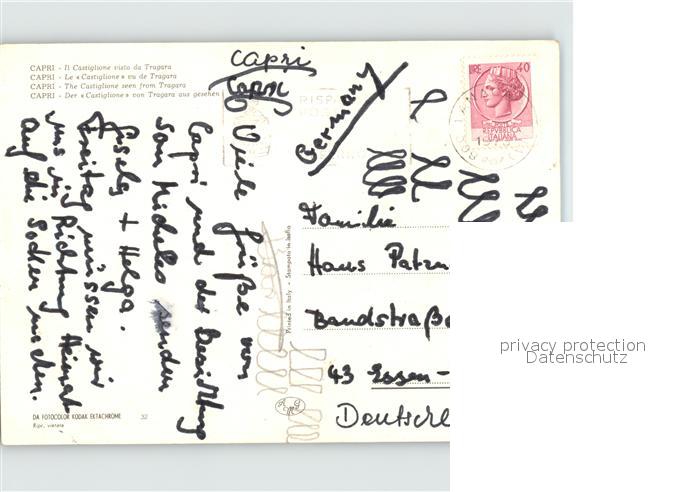 CAPRI - Il Castiglione visto da Tragara
CAPRI - Le «Castiglione» vu de Tragara
CAPRI - The Castiglione seen from Tragara
CAPRI - Der «Castiglione» von Tragara aus gesehen
Capri
Capri
Viele Grüße von
Capri und der Besichtung
San Michele senden
Gisela + Helga.
Freitag müssen wir
uns in Richtung Heimat
auf die Socken machen.
Germany
RISP
40
POSTE
REPVBBLICA
ITALIANA
Familie
Hans Patzn
Bandstraße
43 Essen-
Deutschl
Printed in Italy - Stampato in Italia
DA FOTOCOLOR KODAK EKTACHROME 32
Ripr. vietata
privacy protection
Datenschutz